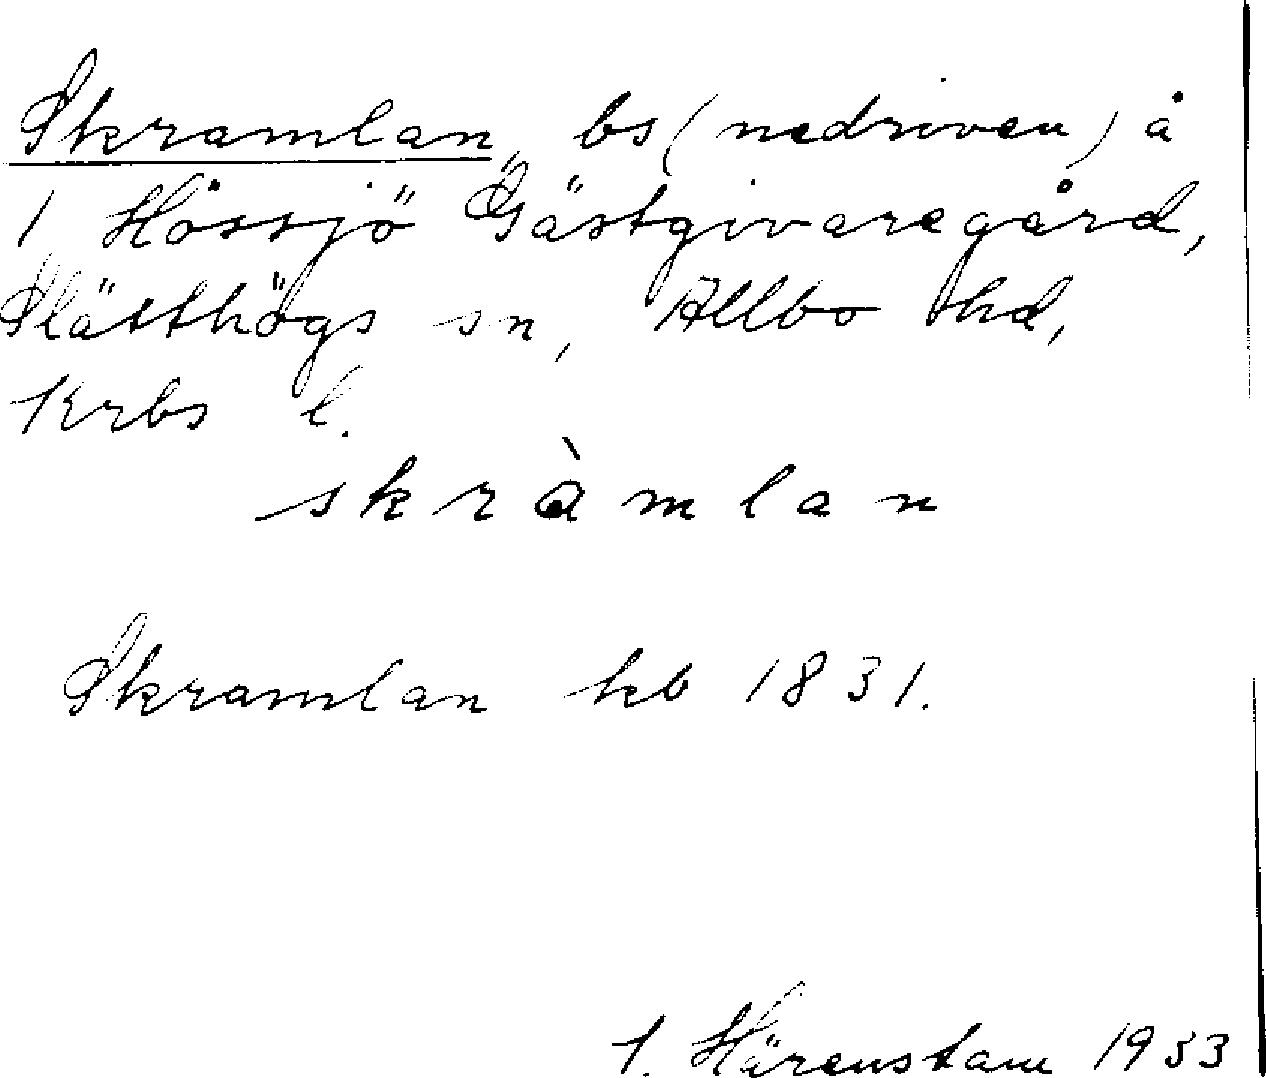 Skramlan, bs (nedriven) å
1 Hössjö Gästgivaregård,
Slätthögs sn, Allbo hd,
Krbs l.
skràmlan
Skramlan kb 1831.
I. Härenstam 1933